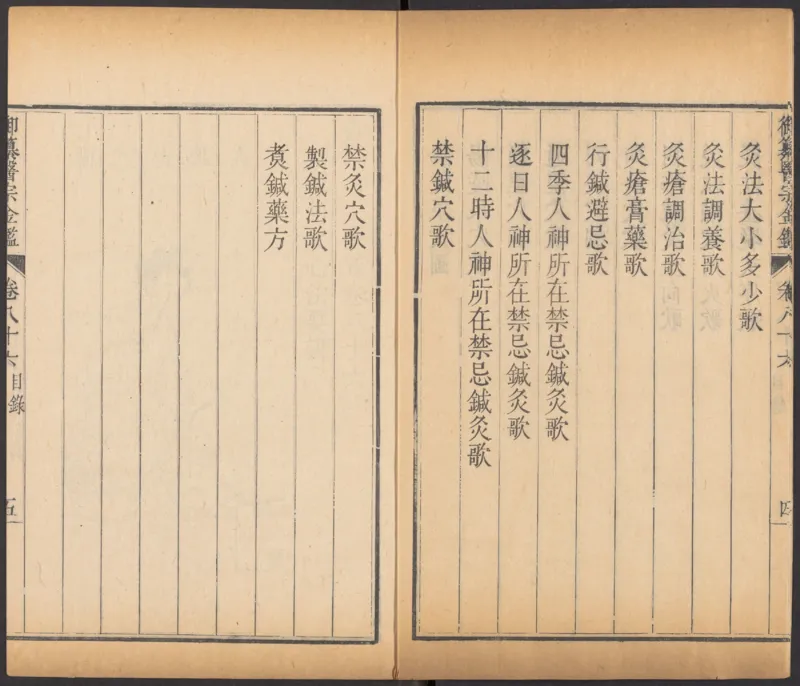 御纂醫宗金鑑 卷八十六 四
灸法大小多少歌
灸法調養歌
灸瘡調治歌
灸瘡膏藥歌
行鍼避忌歌
四季人神所在禁忌鍼灸歌
逐日人神所在禁忌鍼灸歌
十二時人神所在禁忌鍼灸歌
禁鍼穴歌
禁灸穴歌
製鍼法歌
煑鍼藥方
御纂醫宗金鑑 卷八十六 目錄 五